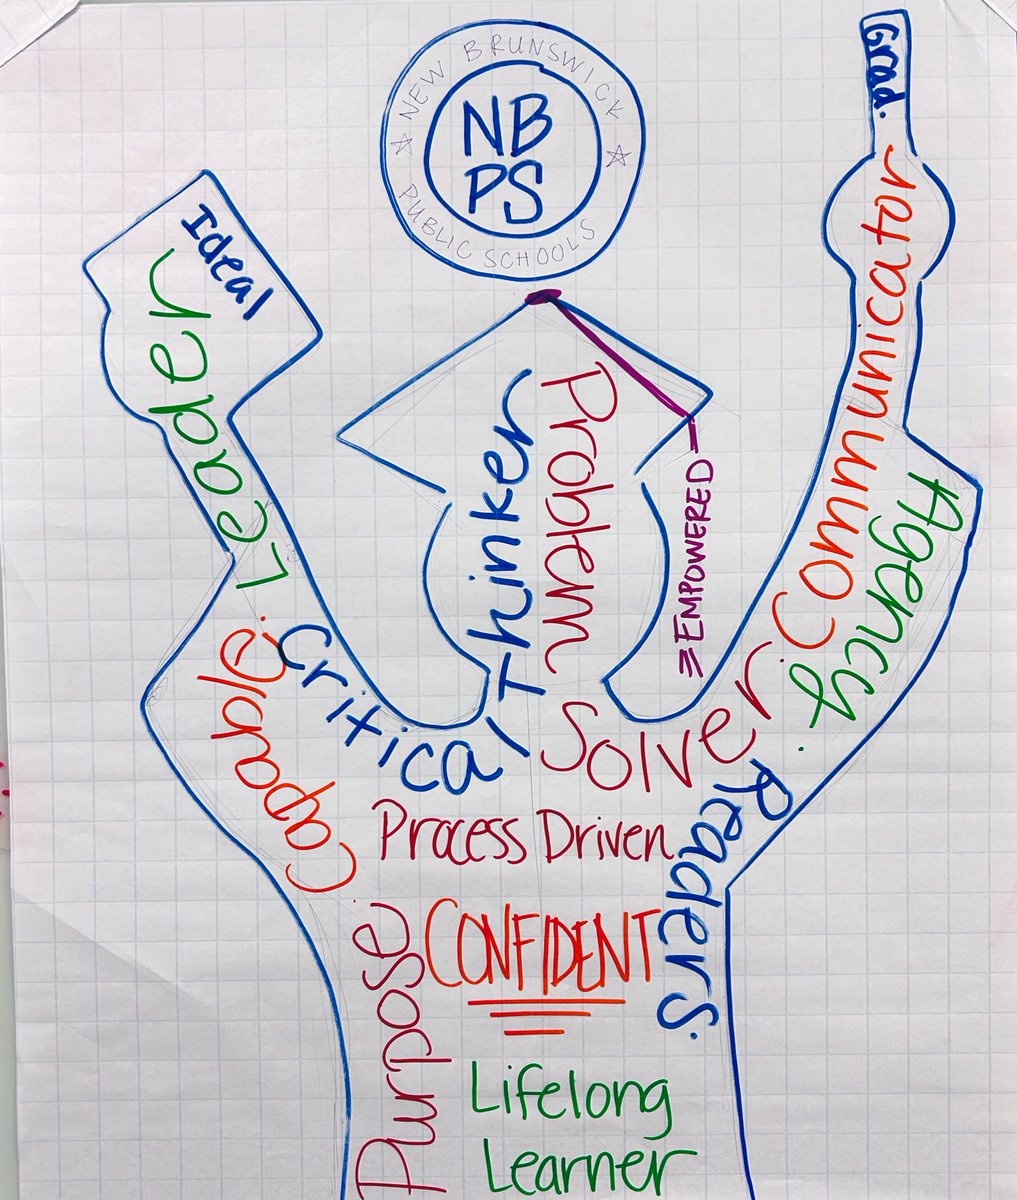 NEW BRUNSWICK
NB
PS
PUBLIC SCHOOLS
Grad.
Ideal
Leader
Communicator
Agency.
Thinker
Problem
EMPOWERED
Capable.
Critical
Solver.
Readers.
Process Driven
CONFIDENT
Purpose
Lifelong
Learner